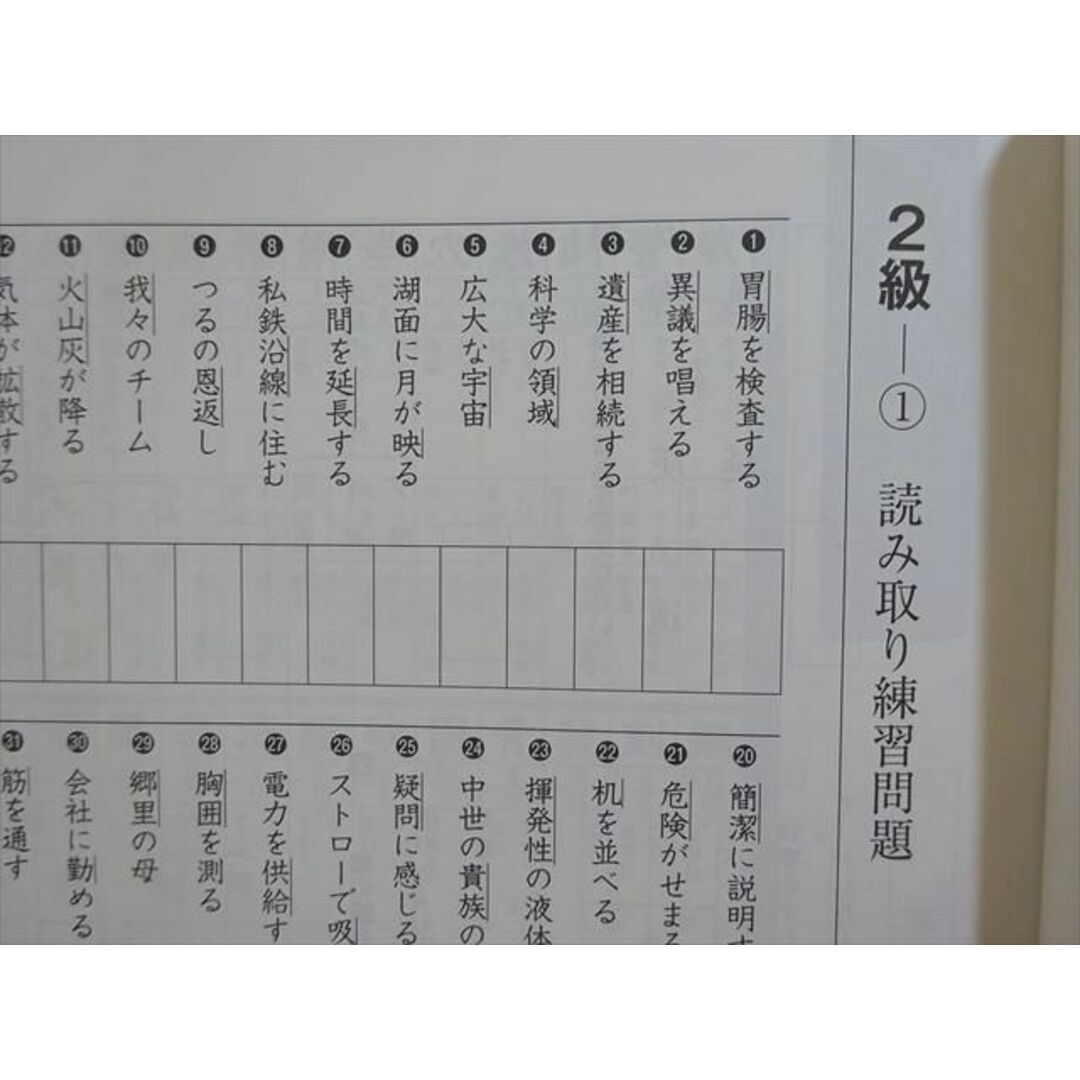 2級―① 読み取り練習問題
❶ 胃腸を検査する
❷ 異議を唱える
❸ 遺産を相続する
❹ 科学の領域
❺ 広大な宇宙
❻ 湖面に月が映る
❼ 時間を延長する
❽ 私鉄沿線に住む
❾ つるの恩返し
❿ 我々のチーム
⓫ 火山灰が降る
⓬ 気体が拡散する
⓴ 簡潔に説明す
㉑ 危険がせまる
㉒ 机を並べる
㉓ 揮発性の液体
㉔ 中世の貴族の
㉕ 疑問に感じる
㉖ ストローで吸
㉗ 電力を供給す
㉘ 胸囲を測る
㉙ 郷里の母
㉚ 会社に勤める
㉛ 筋を通す